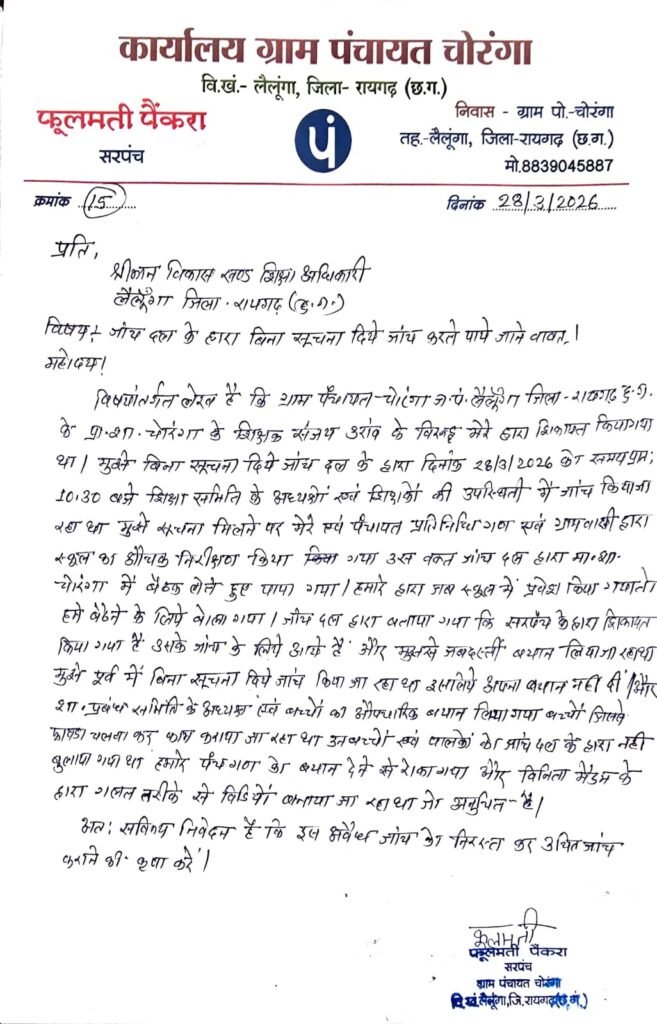 कार्यालय ग्राम पंचायत चोरंगा
वि.खं.- लैलूंगा, जिला- रायगढ़ (छ.ग.)
फूलमती पैंकरा
सरपंच
पं
निवास - ग्राम पो.-चोरंगा
तह.-लैलूंगा, जिला-रायगढ़ (छ.ग.)
मो.8839045887
क्रमांक 15 दिनांक 28/3/2026
प्रति,
श्रीमान विकास खण्ड शिक्षा अधिकारी
लैलूंगा जिला- रायगढ़ (छ.ग.)
विषय:- जांच दल के द्वारा बिना सूचना दिये जांच करते पाये जाने वावत्।
महोदय!
विषयांतर्गत लेख है कि ग्राम पंचायत-चोरंगा ज.पं. लैलूंगा जिला-रायगढ़ छ.ग.
के प्रा.शा. चोरंगा के शिक्षक संजय उरांव के विरुद्ध मेरे द्वारा शिकायत किया गया
था। मुझे बिना सूचना दिये जांच दल के द्वारा दिनांक 28/3/2026 को समय प्रातः
10:30 बजे शिक्षा समिति के अध्यक्षों एवं शिक्षकों की उपस्थिती में जांच किया जा
रहा था मुझे सूचना मिलने पर मेरे एवं पंचायत प्रतिनिधि गण एवं ग्रामवासी द्वारा
स्कूल का औचक निरीक्षण किया गया उस वक्त जांच दल द्वारा मा.शा.
चोरंगा में बैठक लेते हुए पाया गया। हमारे द्वारा जब स्कूल में प्रवेश किया गया तो
हमे बैठने के लिये बोला गया। जांच दल द्वारा बताया गया कि सरपंच के द्वारा शिकायत
किया गया है उसके जांच के लिये आये है और मुझसे जबरदस्ती बयान लिया जा रहा था
मुझे पूर्व में बिना सूचना दिये जांच किया जा रहा था इसलिये अपना बयान नही दी। और
शा. प्रबंध समिति के अध्यक्ष एवं बच्चों का औपचारिक बयान लिया गया बच्चों जिससे
फावड़ा चलवा कर काम कराया जा रहा था उन बच्चों एवं पालकों को जांच दल के द्वारा नही
बुलाया गया था हमारे पंच गण को बयान देने से रोका गया और विनिता मैडम के
द्वारा गलत तरीके से विडियों बनाया जा रहा था जो अनुचित है।
अतः सविनय निवेदन है कि इस अवैध जांच को निरस्त कर उचित जांच
कराने की कृपा करें।
फुलमती
फूलमती पैंकरा
सरपंच
ग्राम पंचायत चोरंगा
वि.खं.लैलूंगा,जि.रायगढ़(छ.ग.)